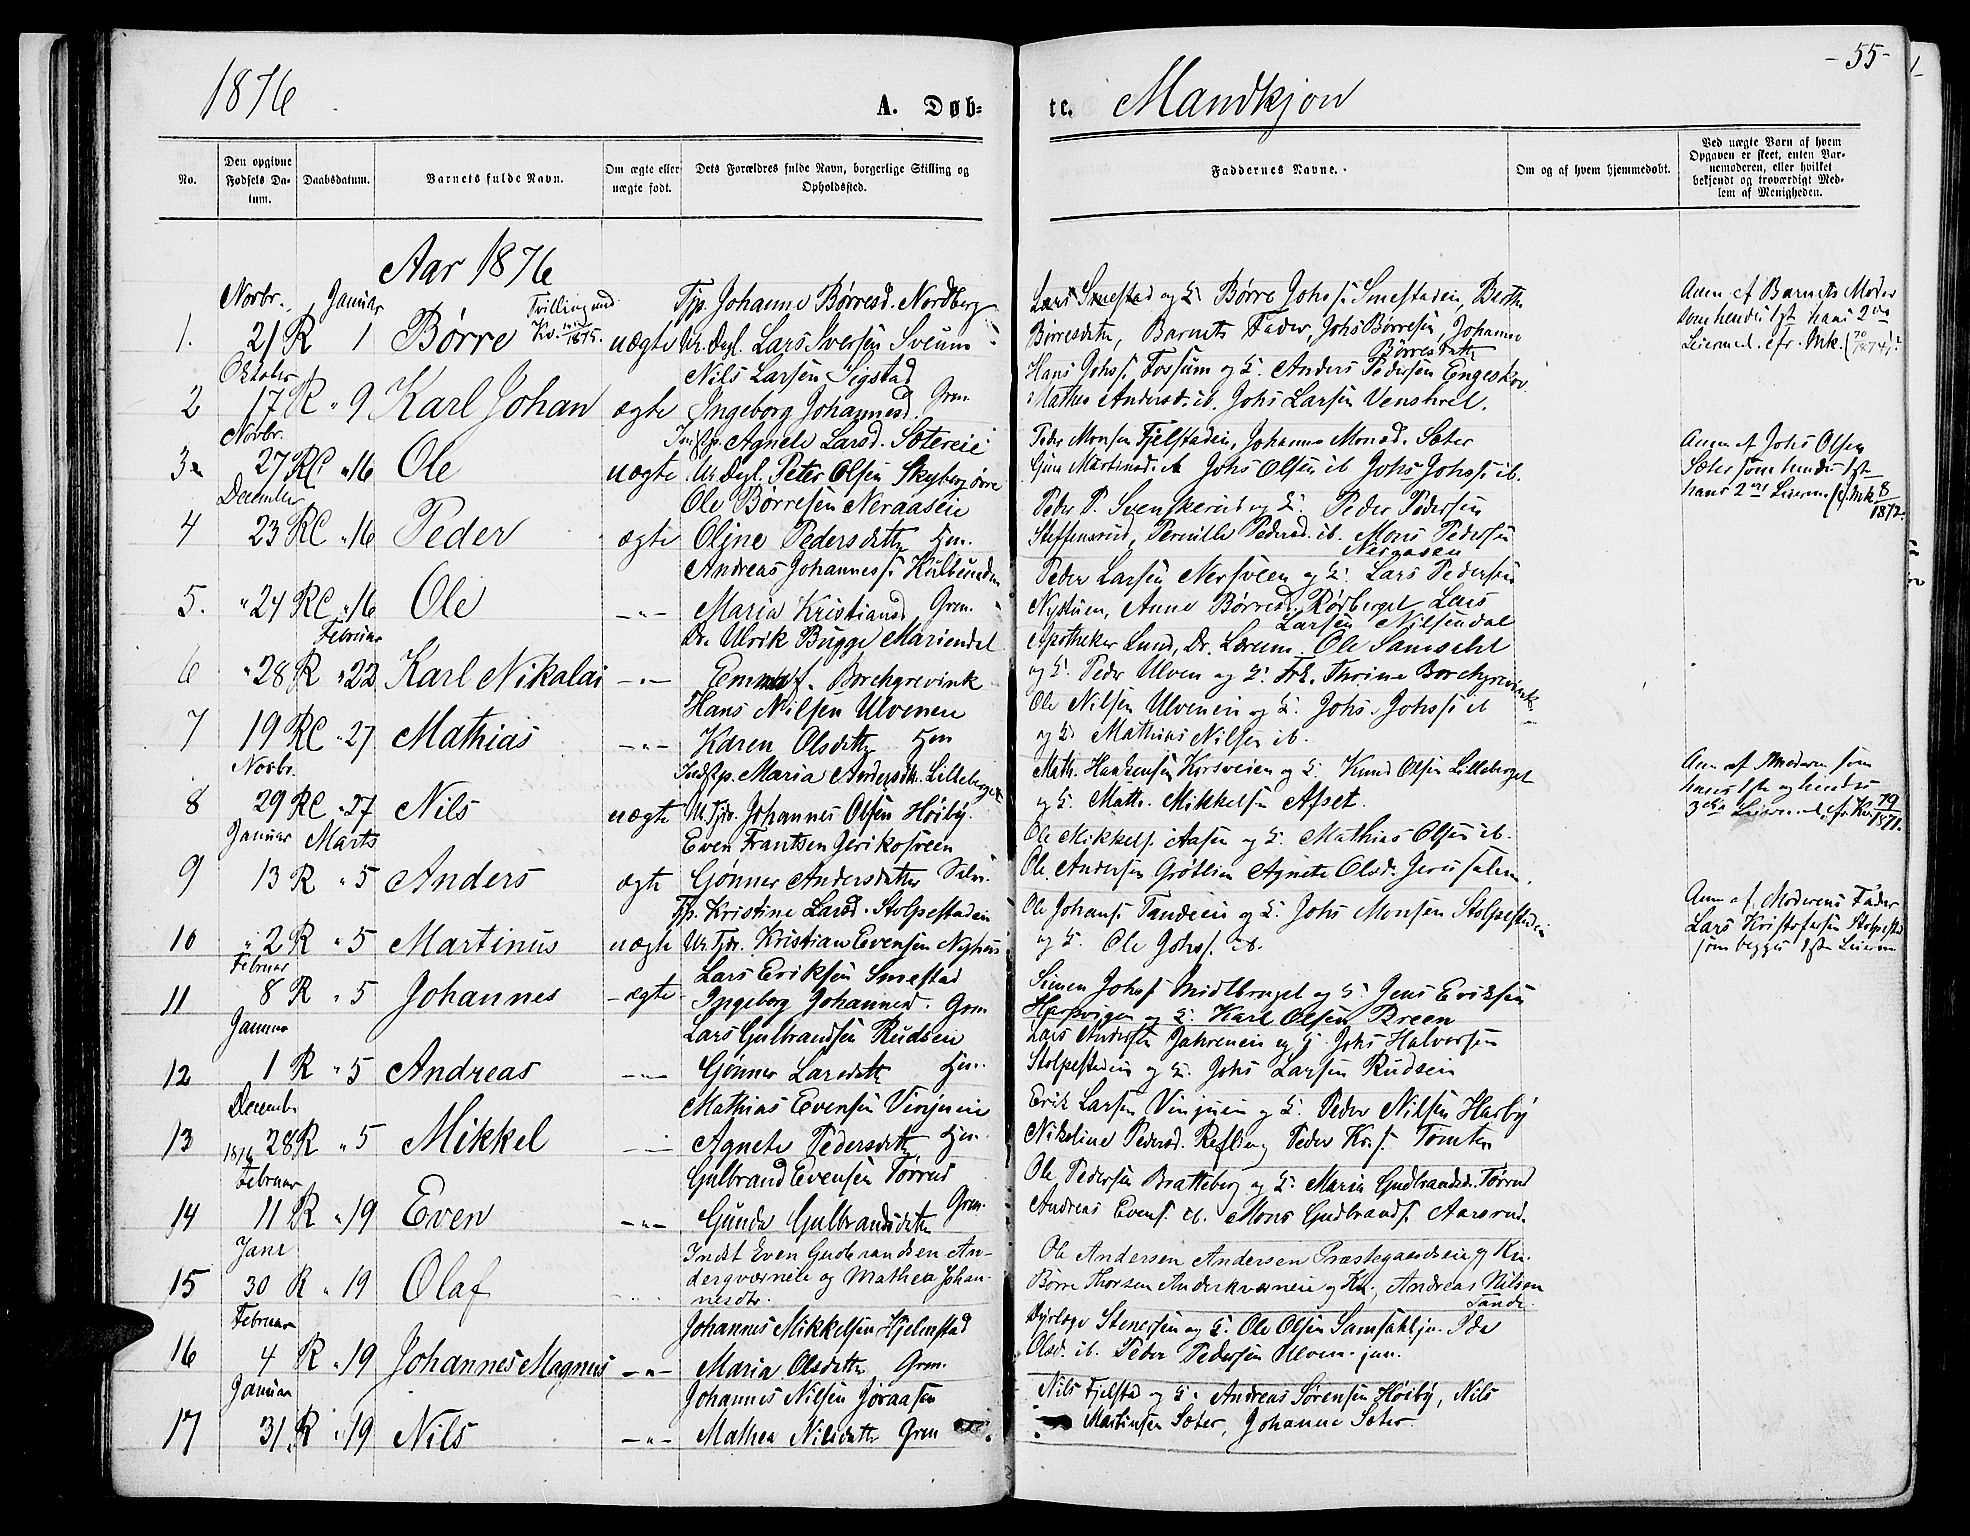 1876
A. Døb-
te.
Mandkjøn
-55-
No.
Den opgivne Fødsels Da-tum.
Daabsdatum.
Barnets fulde Navn.
Om ægte eller uægte født.
Dets Forældres fulde Navn, borgerlige Stilling og Opholdssted.
Faddernes Navne.
Om og af hvem hjemmedøbt.
Ved uægte Børn af hvem Opgaven er skeet, enten Bar-nemoderen, eller hvilket bekjendt og troværdigt Med-lem af Menigheden.
Aar 1876
Novbr. Januar Tvilling med Tjp. Johanne Børresd. Nordberg
1. 21 R 1 Børre uægte Lars Iversen Sveum
Lars Smestad og Børre Johs. Smestadeie, Berthe
Børresdatter, Barnets Fader, Johs Børresen, Johanne
Børresdatter
Anm. af Barnets Moder
som hendes 1ste hans 2den
Leierm. cfr. Mk.
Oktober Nils Larsen Sigstad
2 17 R " 9 Karl Johan ægte Ingeborg Johannesd. Grm.
Hans Johs. Fossum og Anders Pedersen Engeskov
Mathea Andersd. ib. Johs Larsen
Novbr. Agnete Larsd. Sætereie
3 27 RC " 16 Ole uægte Peter Olsen Skyberg øvre
Peder Monsen Fjelstadeie, Johanne Monsd. Sæter
Johs Olsen ib Johs Johs. ib.
Anm. af Johs Olsen
Sæter som hendes 1ste
hans 2den Leierm. cfr. Mk 8/1872.
December Ole Børresen Neraaseie
4 23 RC " 16 Peder ægte Oline Pedersdatter Hjm.
Peder P. Svenskerud og Peder Pedersen
Steffensrud, Pernille Pedersd. ib. Mons Pedersen
Neraasen
Andreas Johanness.
5. " 24 RC " 16 Ole -"- Maria Kristiansd. Grm.
Peder Larsen Nersveen og Lars Pedersen
Nystuen, Anne Børresd. Rørberget Lars
Larsen Nilsendal
Februar Dr. Ulrik Bugge Mariendal
6 " 28 R " 22 Karl Nikolai -"- Emma f. Borchgrevink
Apotheker Lund, Dr. Ole Samsahl
og Peder Ulven og Frk. Thrine Borchgrevink
Hans Nilsen Ulveneie
7 19 RC " 27 Mathias -"- Karen Olsdatter Hjm
Ole Nilsen Ulveneie og Johs. Johs. ib
og Mathias Nilsen ib.
Novbr. Maria Andersdtr. Lilleberget
8 29 RC " 27 Nils uægte Johannes Olsen Høiby.
Math. Haakensen Korsveien og Knud Olsen Lilleberget
og Math. Mikkelsen Afset.
Anm. af Moderen som
hans 1ste og hendes
3die Leierm. cfr. Kv. 79/1871.
Januar Marts Even Frantsen Jerikosveen
9 13 R " 5 Anders ægte Gønner Andersdatter Selv.
Ole Mikkels. Aasen og Mathias Olsen ib.
Ole Andersen Grøtlien Agnete Olsd. Jerusalem.
Tjp. Kristine Larsd. Stolpestadeie
10 " 2 R " 5 Martinus uægte Kristian Evensen Nyhus
Ole Johans. Tandeeie og Johs Monsen Stolpestadeie
og Ole Johs. ib.
Anm. af Moderens Fader
Lars Kristofersen Stolpestad
som begges 1ste Leierm
Februar Lars Eriksen Smestad
11 8 R " 5 Johannes - ægte Ingeborg Johannesd. Grm
Simen Johs. Midlbraget og Jens Eriksen
og Karl Olsen Breen
Januar Lars Gulbrandsen Rudseie
12 1 R " 5 Andreas -"- Gønner Larsdatter Hjm.
Lars Andersen og Johs Halvorsen
Stolpestadeie og Johs Larsen Rudseie
December Mathias Evensen Vinjueie
13 28 R " 5 Mikkel -"- Agnete Pedersdatter Hjm.
Erik Larsen Vinjueie og Peder Nilsen Harby
Nikoline Pedersd. Refling Peder Kr.s. Tomten
1876 Februar Gulbrand Evensen Tørrud
14 11 R " 19 Even -"- Gunda Gulbrandsdatter Grm.
Ole Pedersen Bratteberg og Maria Gudbrandsd. Tørrud
Andreas Evens. ib. Mons Gudbrands. Aasrud.
Janr Indst Even Gudbrandsen An-
15 30 R " 19 Olaf dersqværneie og Mathea Johan-
nesdtr.
Ole Andersen Andersen Præstegaardseie og Ku.
Børre Thorsen Anderskværneie og Ku., Andreas Nilsen
Tande.
Februar Johannes Mikkelsen Hjelmstad
16 4 R " 19 Johannes Magnus -"- Maria Olsdatter Grm.
Dyrlæge Stenersen og Ole Olsen Samsahl jn. Ida
Olsd. ib. Peder Pedersen Ulven jun.
Januar Johannes Nilsen Joraasen
17 31 R " 19 Nils -"- Mathea Nilsdatter Grm
Nils Fjelstad og Andreas Sørensen Høiby, Nils
Martinsen Sæter, Johanne Sæter